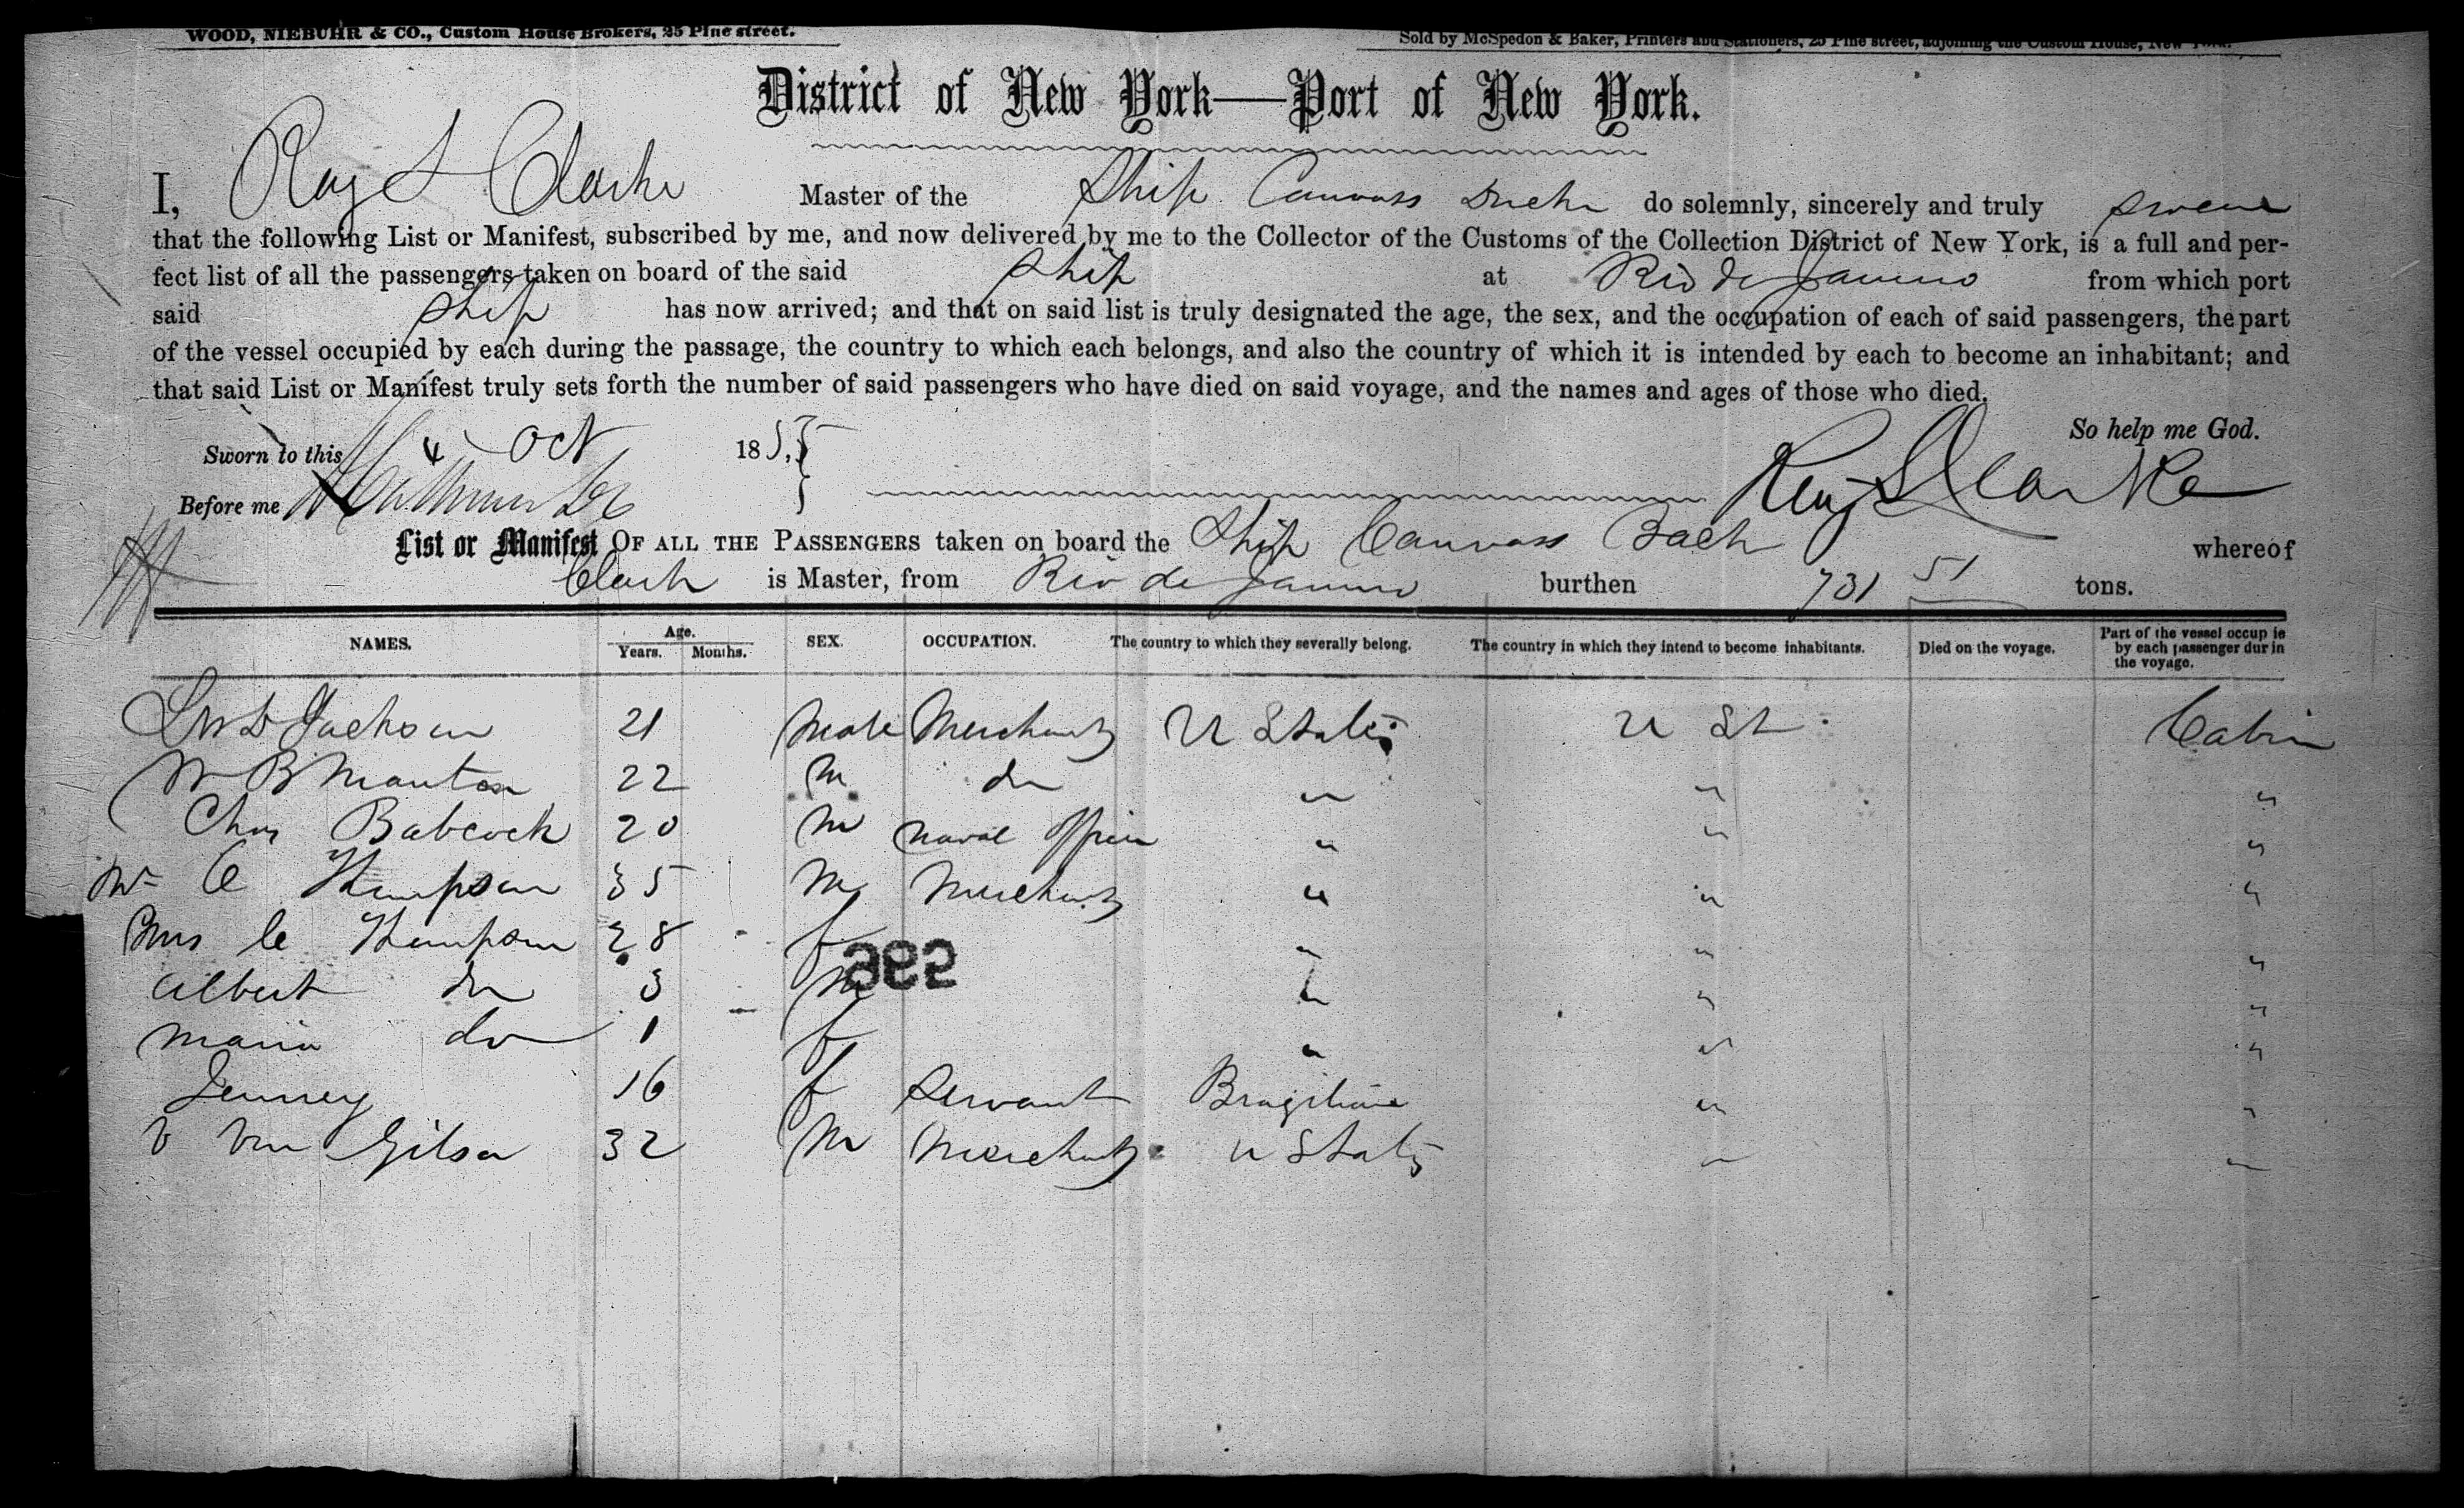 WOOD, NIEBUHR & CO., Custom House Brokers, 25 Pine street.
Sold by McSpedon & Baker, Printers and Stationers, 25 Pine street, adjoining the Custom House, New York.
District of New York—Port of New York.
I, Ray S Clarke Master of the Ship Canvass Duck do solemnly, sincerely and truly swear
that the following List or Manifest, subscribed by me, and now delivered by me to the Collector of the Customs of the Collection District of New York, is a full and per-
fect list of all the passengers taken on board of the said ship at Rio de Janeiro from which port
said ship has now arrived; and that on said list is truly designated the age, the sex, and the occupation of each of said passengers, the part
of the vessel occupied by each during the passage, the country to which each belongs, and also the country of which it is intended by each to become an inhabitant; and
that said List or Manifest truly sets forth the number of said passengers who have died on said voyage, and the names and ages of those who died.
So help me God.
Sworn to this 4 Oct 1855
Before me
Clarke
List or Manifest OF ALL THE PASSENGERS taken on board the Ship Canvass Back whereof
Clark is Master, from Rio de Janeiro burthen 731 51 tons.
NAMES. Age. Years. Months. SEX. OCCUPATION. The country to which they severally belong. The country in which they intend to become inhabitants. Died on the voyage. Part of the vessel occup ie by each passenger dur in the voyage.
Jackson 21 Male Merchant U States U St Cabin
W B Manton 22 M do " " "
Chas Babcock 20 M Naval Officer " " "
Mr C Thompson 35 M Merchant " " "
Mrs C Thompson 28 f " " "
Albert do 3 M " " "
Maria do 1 f " " "
Jenney 16 f Servant Brazilian " "
V Van Gilsa 32 M Merchant U States " "
592